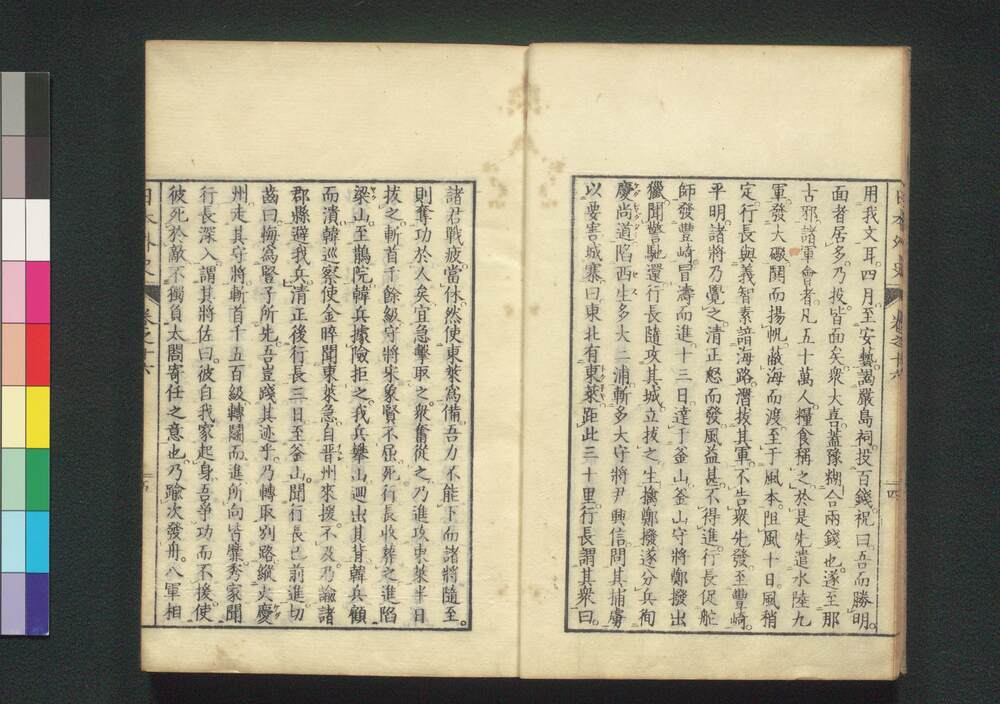 用我文耳。四月至安藝。謁嚴島祠。投百錢。祝曰。吾而勝明。
面者居多。乃投。皆面矣。衆大喜。蓋豫糊合兩錢也。遂至那
古邪。諸軍會者。凡五十萬人。糧食稱之。於是先遣水陸九
軍發。大礮鬨而揚帆。蔽海而渡。至于風本。阻風十日。風稍
定。行長與義智素諳海路。潛拔其軍。不告衆先發。至豐崎。
平明。諸將乃覺之。清正怒而發。風益甚。不得進。行長促舵
師發豐崎。冒濤而進。十三日。達于釜山。釜山守將鄭撥出
獵。聞警馳還。行長隨攻其城。立拔之。生擒鄭撥。遂分兵徇
慶尚道。陷西生多大二浦。斬多大守將尹興信。問其捕虜
以要害城寨。曰東北有東萊。距此三十里。行長謂其衆曰。
諸君戰疲。當休。然使東萊爲備。吾力不能下。而諸將隨至。
則奪功於人矣。宜急擊取之。衆奮從之。乃進攻東萊。半日
拔之。斬首千餘級。守將宋象賢不屈死。行長收葬之。進陷
梁山。至鵲院。韓兵據險拒之。我兵攀山。迴出其背。韓兵顧
而潰。韓巡察使金晬聞東萊急。自晋州來援。不及。乃諭諸
郡縣避我兵。清正後行長三日至釜山。聞行長已前進。切
齒曰。悔爲豎子所先。吾豈踐其迹乎。乃轉取別路。縱火慶
州。走其守將。斬首千五百級。轉鬪而進。所向皆靡。秀家聞
行長深入。謂其將佐曰。彼自我家起身。吾爭功而不援。使
彼死於敵。不獨負太閤寄任之意也。乃踰次發舟。八軍相